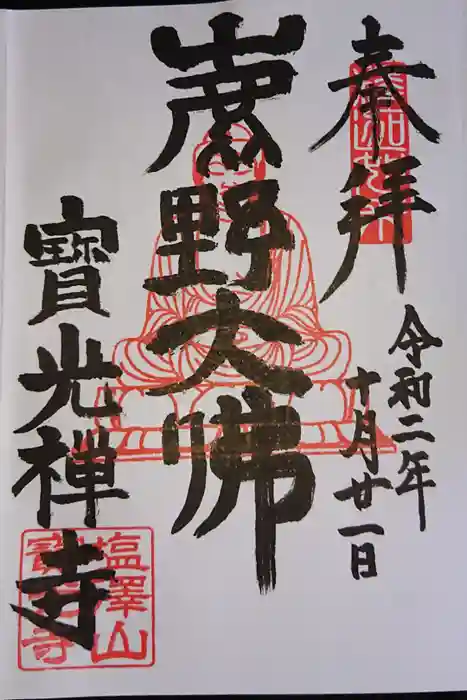 奉拝
令和二年
十月廿一日
鹿野大佛
寶光禅寺
塩澤山
寶光寺